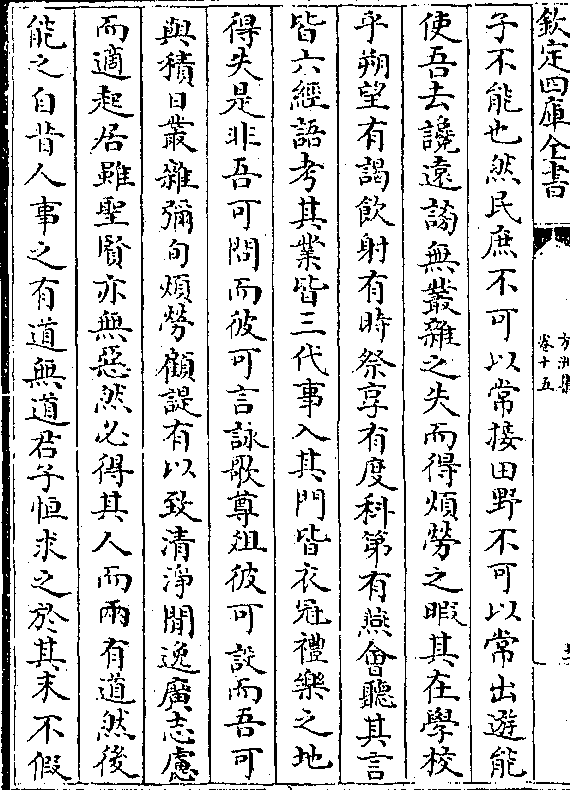 欽定四庫全書
方洲集
卷十五
子不能也然民庶不可以常接田野不可以常出遊能
使吾去讒遠謗無叢雜之失而得煩勞之暇其在學校
乎朔望有謁飲射有時祭享有度科第有燕會聽其言
皆六經語考其業皆三代事入其門皆衣冠禮樂之地
得失是非吾可問而彼可言詠歌尊俎彼可設而吾可
與積日叢雜彌旬煩勞顧諟有以致清淨閒逸廣志慮
而適起居雖聖賢亦無惡然必得其人而兩有道然後
能之自昔人事之有道無道君子恒求之於其末不假